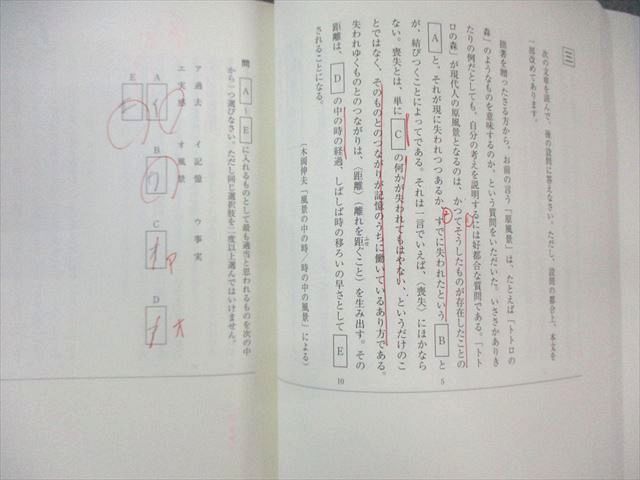 三
次の文章を読んで、後の設問に答えなさい。ただし、設問の都合上、本文を
一部改めてあります。
拙著を贈ったさる方から、お前の言う「原風景」は、たとえば「トトロの
森」のようなものを意味するのか、という質問をいただいた。いささかありき
たりの例だとしても、自分の考えを説明するには好都合な質問である。「トト
ロの森」が現代人の原風景となるのは、かつてそうしたものが存在したことの
A と、それが現に失われつつあるか、すでに失われたという B と
5
が、結びつくことによってである。それは一言でいえば、〈喪失〉にほかなら
ない。喪失とは、単に C の何かが失われてもはやない、というだけのこ
とではなく、そのものとのつながりが記憶のうちに働いているあり方である。
失われゆくものとのつながりは、〈距離〉(離れを距ぐこと)を生み出す。その
へだ
距離は、 D の中の時の経過、しばしば時の移ろいの早さとして E
10
されることになる。
(木岡伸夫「風景の中の時/時の中の風景」による)
問 A ~ E に入れるものとして最も適当と思われるものを次の中
から一つ選びなさい。ただし同じ選択肢を二度以上選んではいけません。
ア 過去 イ 記憶 ウ 事実
エ 実感 オ 風景
A
B
C
D
E
ア
オ